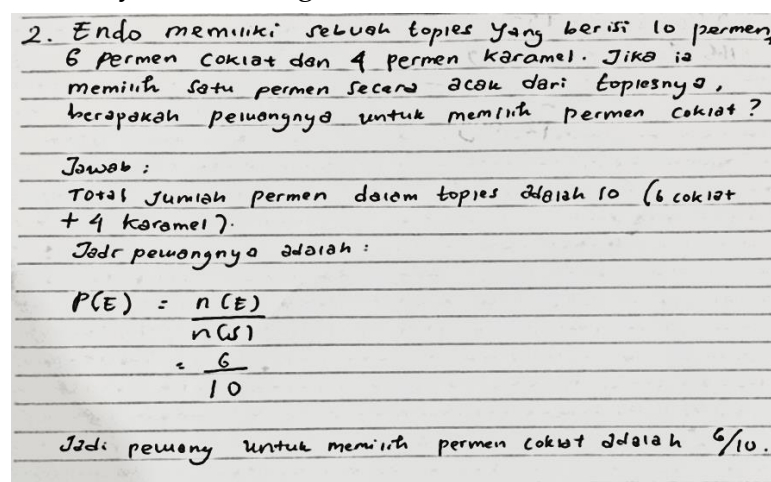 2. Endo memiliki sebuah toples yang berisi 10 permen,
6 permen coklat dan 4 permen karamel. Jika ia
memilih satu permen secara acak dari toplesnya,
berapakah peluangnya untuk memilih permen coklat?
Jawab :
Total Jumlah permen dalam toples adalah 10 (6 coklat
+ 4 karamel).
Jadi peluangnya adalah :
P(E) = n(E)
n(S)
= 6
10
Jadi peluang untuk memilih permen coklat adalah 6/10.